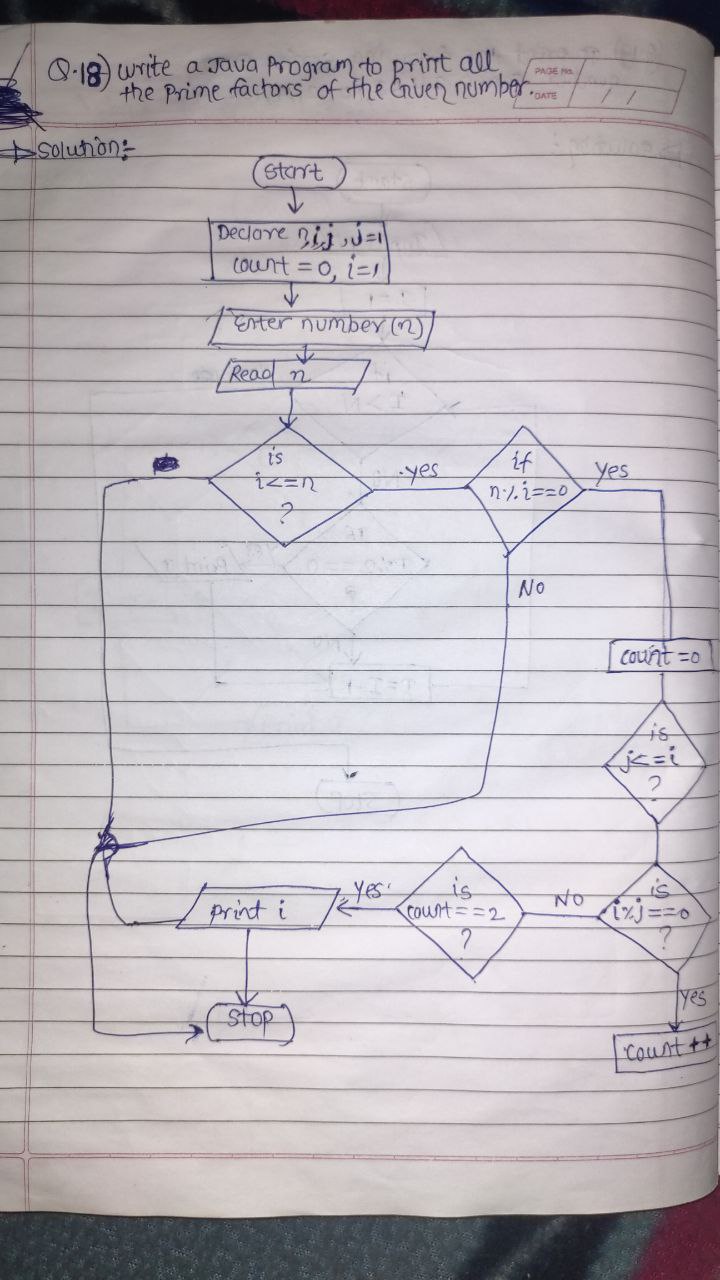 Q.18) write a Java Program to print all
the Prime factors of the Given number.
PAGE No.
DATE / /
Solution:-
Start
Declare n,i,j, j=1
count = 0, i=1
Enter number (n)
Read n
is
i<=n
?
yes
if
n%i==0
yes
NO
count =0
is
j<=i
?
is
i%j==0
?
NO
is
count==2
?
yes
print i
yes
stop
count ++